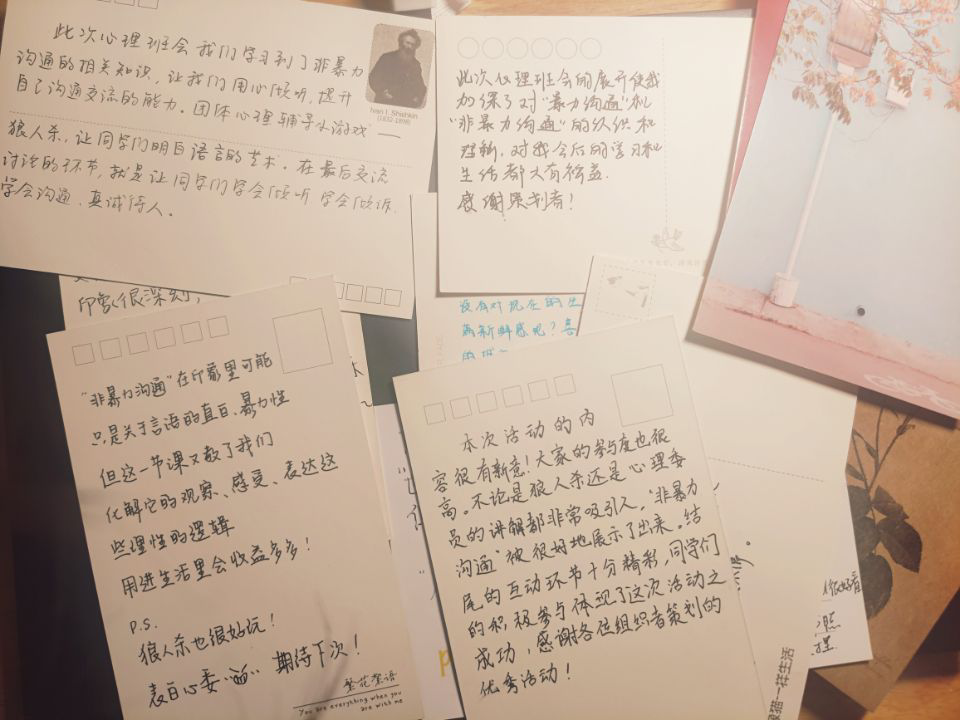 此次心理班会我们学习到了非暴力
沟通的相关知识，让我们用心倾听，提升
自己沟通交流的能力。团体心理辅导小游戏——
狼人杀，让同学们明白语言的艺术。在最后交流
讨论的环节，就是让同学们学会倾听 学会倾诉，
学会沟通，真诚待人。
Ivan I. Shishkin
(1832-1898)
此次心理班会的展开使我
加深了对“暴力沟通”和
“非暴力沟通”的认识和
理解，对我今后的学习和
生活都大有裨益.
感谢策划者！
印象很深刻，
没有对现在的生
“非暴力沟通”在印象里可能
只是关于言语的直白、暴力性
但这一节课又教了我们
化解它的观察、感受、表达这
些理性的逻辑
用进生活里会收益多多！
P.S.
狼人杀也很好玩！
表白心委 期待下次！
繁花絮语
You are everything when you
are with me
本次活动的内
容很有新意！大家的参与度也很
高。不论是狼人杀还是心理委
员的讲解都非常吸引人，“非暴力
沟通”被很好地展示了出来。结
尾的互动环节十分精彩，同学们
的积极参与体现了这次活动之
成功，感谢各位组织者策划的
优秀活动！
很好看
猫一样生活